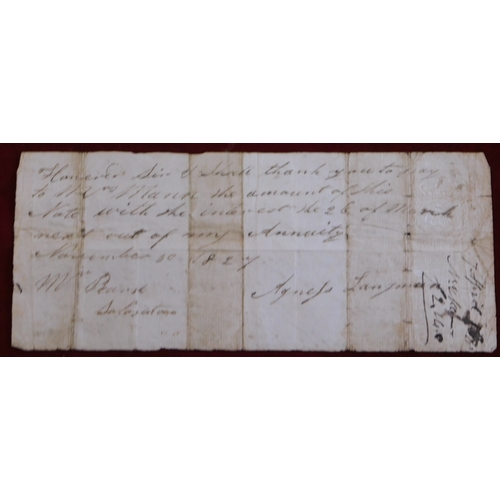 Honored Sir I Shall thank you to pay
to Mrs Mann the amount of this
Note with the interest the 26 of March
next out of my Annuity
November 30 1827
Mr
Agness Langman